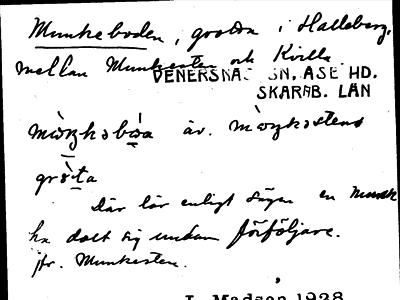 Munkeboden, grotta i Halleberg,
mellan Munkesten och Kvilla
VENERSNÄS SN, ÅSE HD.
SKARAB. LÄN
äv.
Där lär enligt sägen en munk
ha dolt sig undan förföljare.
jfr. Munkesten.
I. Madsen 1928